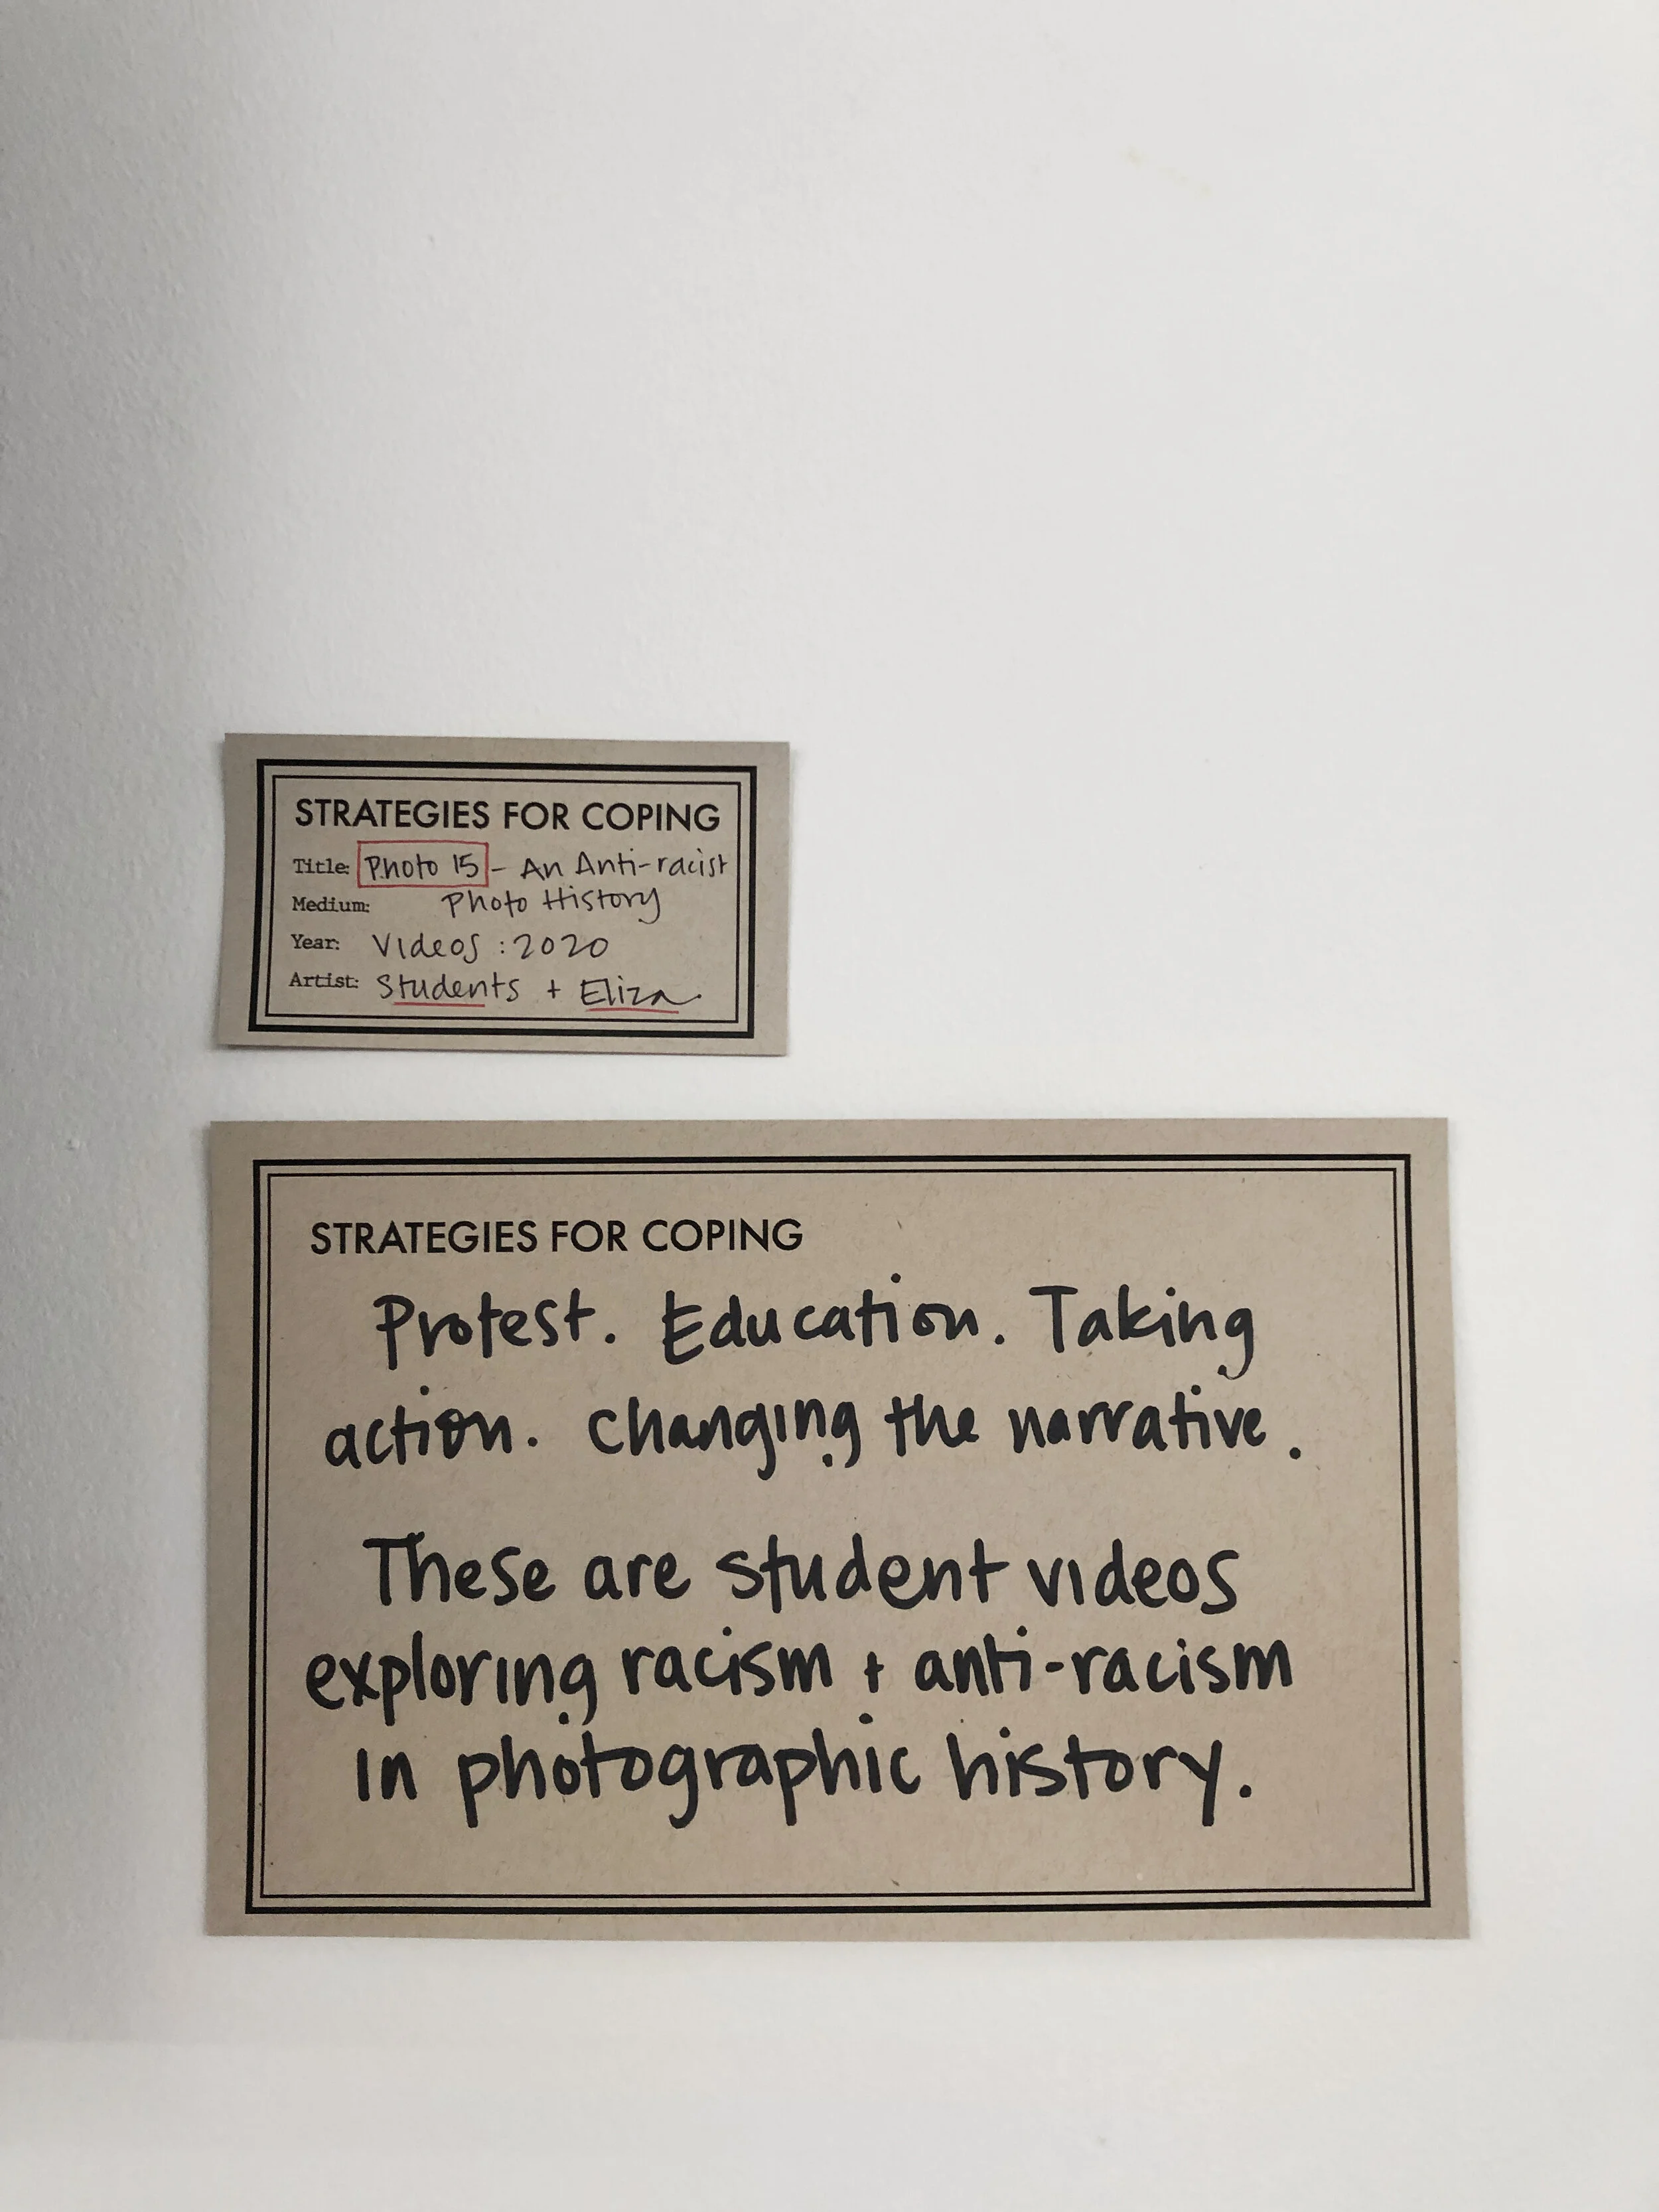 STRATEGIES FOR COPING
Title: Photo 15 - An Anti-racist
Medium: Photo History
Year: Videos : 2020
Artist: Students + Eliza
STRATEGIES FOR COPING
Protest. Education. Taking
action. Changing the narrative.
These are student videos
exploring racism + anti-racism
in photographic history.